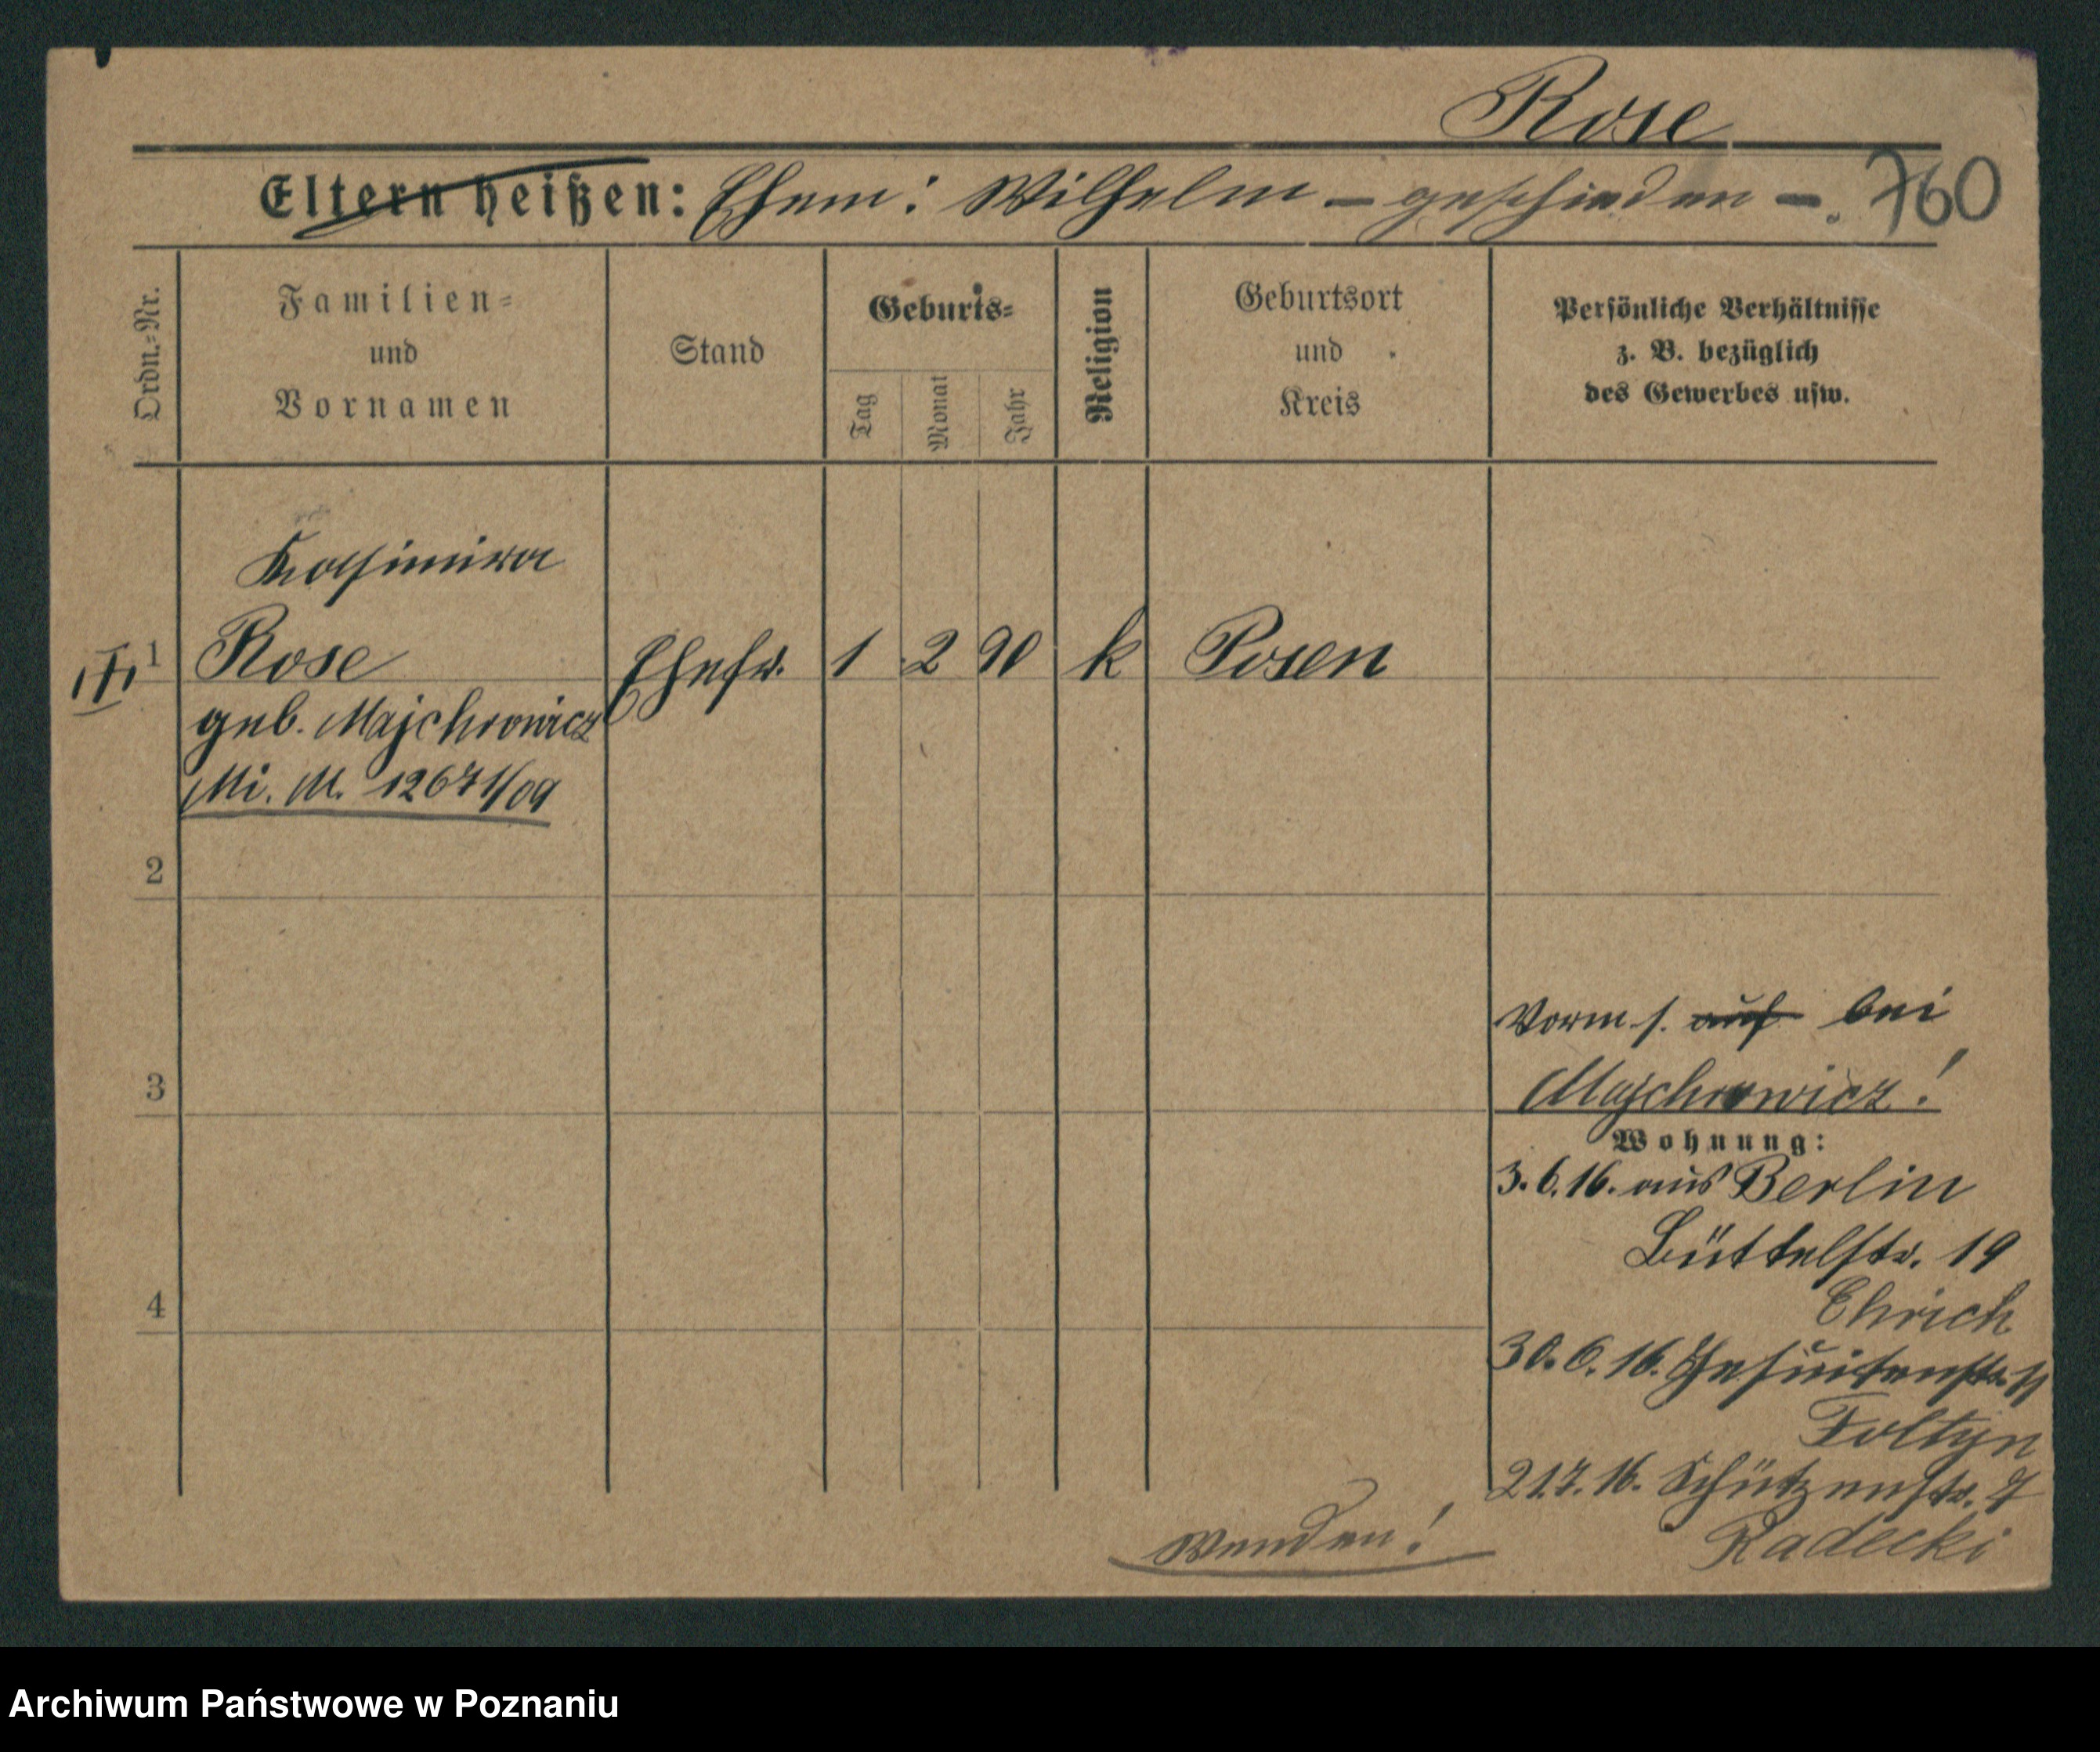 Rose
Eltern heißen: Ehem: Wilhelm – geschieden –. 760
Ordn.-Nr.
Familien-
und
Vornamen
Stand
Geburts-
Tag
Monat
Jahr
Religion
Geburtsort
und
Kreis
Persönliche Verhältnisse
z. B. bezüglich
des Gewerbes usw.
Kasimira
1 Rose Ehefr. 1 2 90 k Posen
geb. Majchrowicz
Mi. M. 12671/09
2
Vorm. s. auf bei
3 Majchrowicz!
Wohnung:
3.6.16. aus Berlin
Büttelstr. 19
4 Ehrich
30.6.16. Jesuitenstr. 11
Foltyn
21.7.16. Schützenstr. 7
Wenden! Radecki
Archiwum Państwowe w Poznaniu